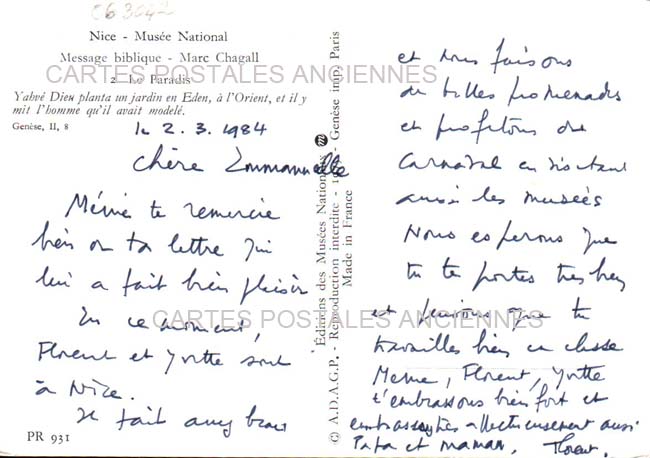 063042
Nice - Musée National
Message biblique - Marc Chagall
2 - Le Paradis
CARTES POSTALES ANCIENNES
Yahvé Dieu planta un jardin en Eden, à l'Orient, et il y
mit l'homme qu'il avait modelé.
Genèse, II, 8
le 2.3.1984
Chère Emmanuelle
Mémé te remercie
bien de ta lettre qui
lui a fait bien plaisir
En ce moment,
Florent et Yvette sont
à Nice.
Il fait assez beau
PR 931
Éditions des Musées Nationaux
© A.D.A.G.P. - Reproduction interdite - Genèse imp. Paris
Made in France
et nous faisons
de belles promenades
et profitons du
Carnaval en visitant
aussi les musées
Nous espérons que
tu te portes très bien
CARTES POSTALES ANCIENNES
et pensons que tu
travailles bien en classe
Meme, Florent, Yvette
t'embrassons bien fort et
embrassez affectueusement aussi
Papa et maman. Florent.